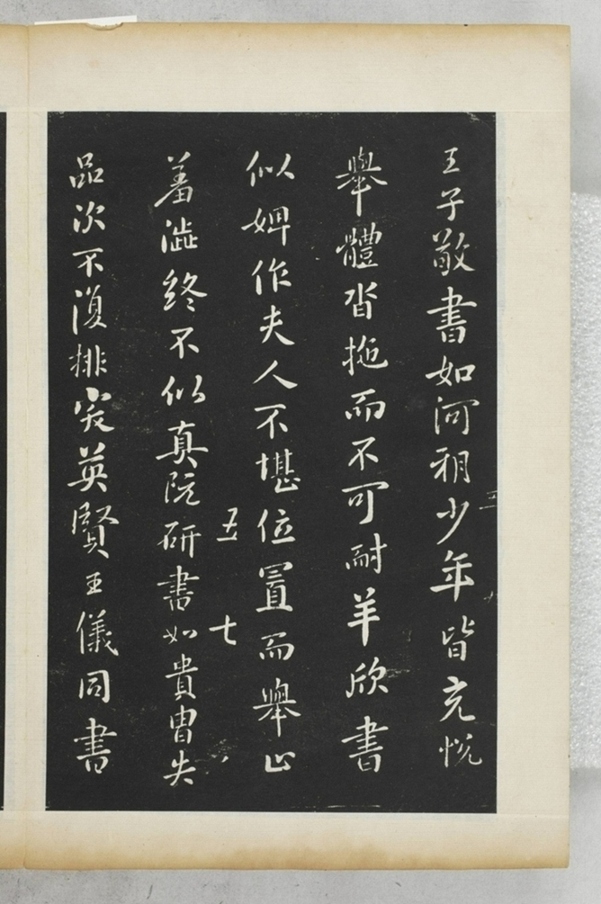 王子敬書如河朔少年皆充悦
舉體沓拖而不可耐羊欣書
似婢作夫人不堪位置而舉止
五 七
羞澁終不似真阮研書如貴胄失
品次不復排突英賢王儀同書